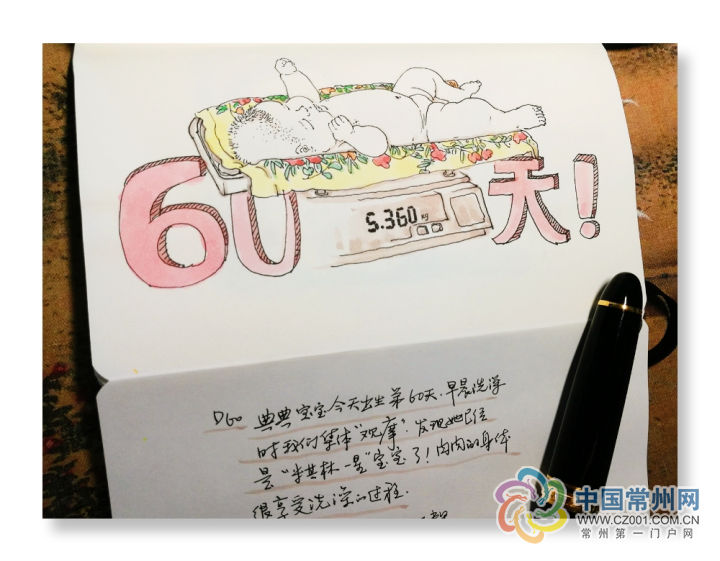 60天!
5.360 kg
D60 典典宝宝今天出生第60天.早晨洗澡
时我们集体"观摩".发现她已经
是"米其林一星"宝宝了!肉肉的身体
很享受洗澡的过程.
中国常州网
WWW.CZ001.COM.CN
常州第一门户网